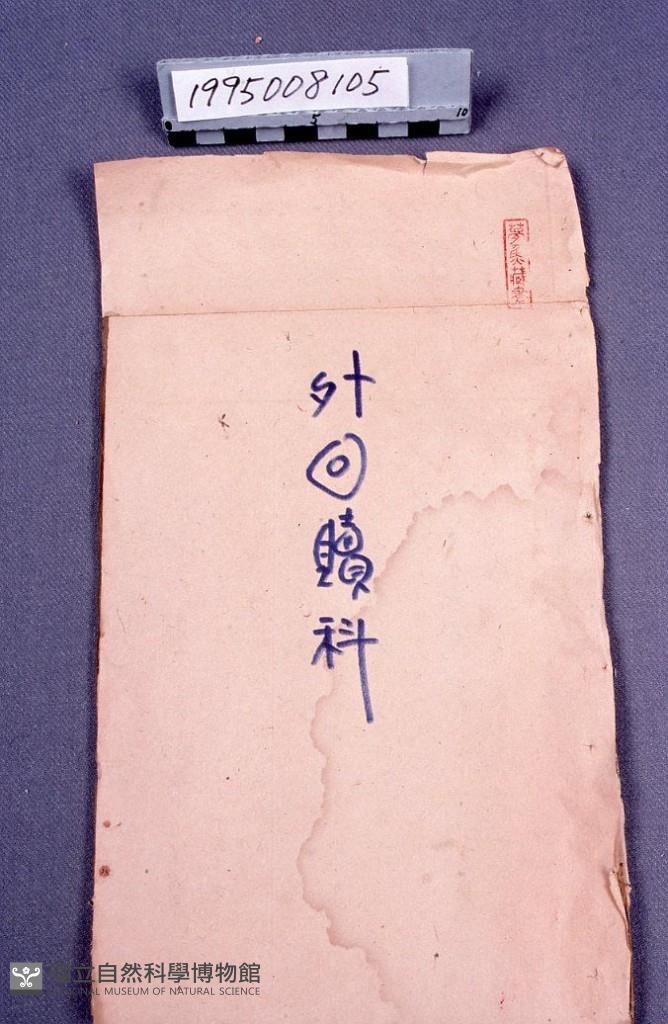 1995008105
5
10
藏書
外回贖科
國立自然科學博物館
NATIONAL MUSEUM OF NATURAL SCIENCE